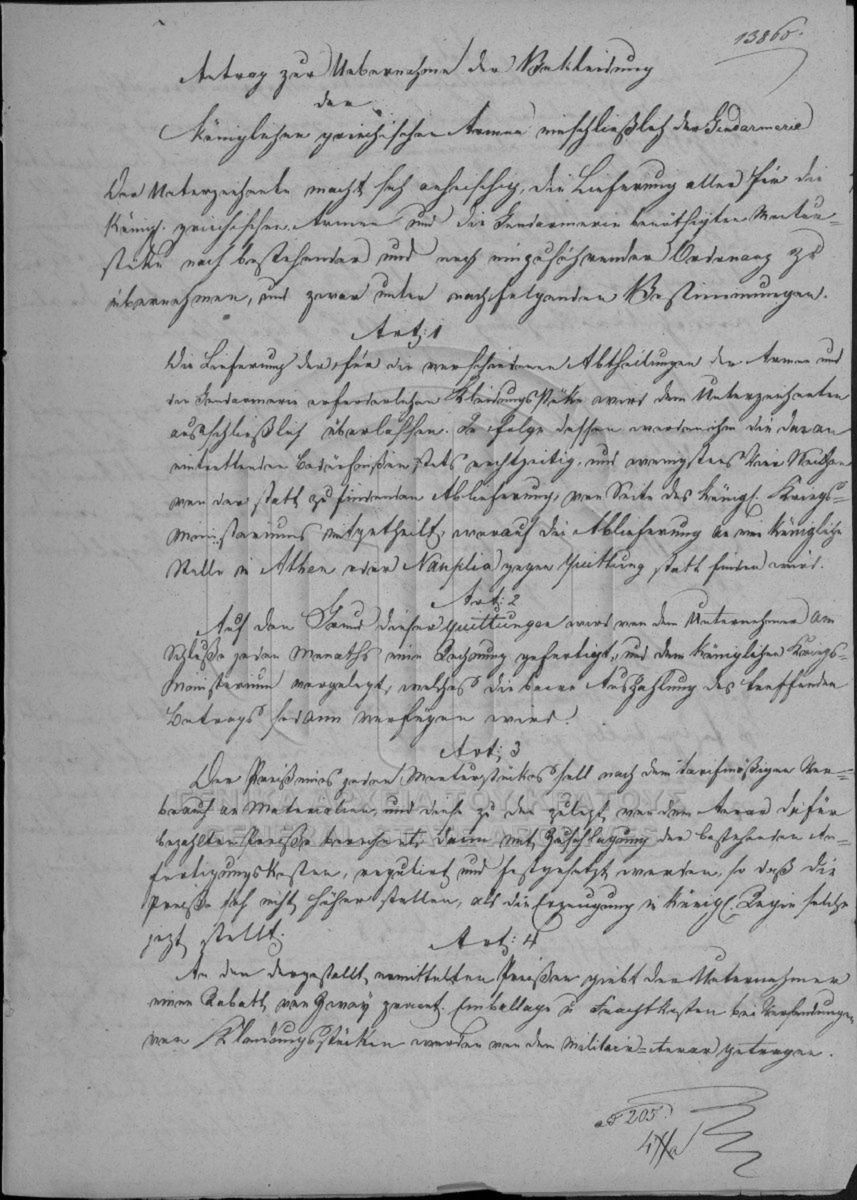 13860.
Antrag zur Uebernahme der Bekleidung
der
Königlichen griechischen Armee einschließlich der Gendarmerie
Der Unterzeichnete macht sich anheischig, die Lieferung aller für die
Königl. griechischen Armee und die Gendarmerie benöthigten Montur=
stüke nach bestehender und noch einzuführender Ordonanz zu
übernehmen, und zwar unter nachfolgenden Bestimmungen.
Art: 1
Die Lieferung der, für die verschiedenen Abtheilungen der Armee und
der Gendarmerie erforderlichen Kleidungsstüke wird dem Unterzeichneten
ausschließlich überlassen. In Folge dessen werden ihm die daran
eintrettenden Bedürfnißen stets rechtzeitig, und wenigstens Vier Wochen
von der statt zu findenden Ablieferung, von Seite des Königl. Kriegs=
Ministeriums mitgetheilt, worauf die Ablieferung an eine Königliche
Stelle in Athen oder Nauplia gegen Quittung statt finden wird.
Art: 2
Auf den Grund dieser Quittungen wird von dem Unternehmer am
Schluße jeden Monaths eine Rechnung gefertigt, und dem Königlichen Kriegs=
Ministerium vorgelegt, welches die baare Auszahlung des treffenden
Betrags sodann verfügen wird.
Art: 3
Der Preiß eines jeden Monturstückes soll nach dem tarifmäßigen Ver=
brauch an Materialien, und diese zu den zulezt von dem Aerar dafür
bezahlten Preiße berechnet, dann mit Zuschlagung der bestehenden An=
fertigungskosten, regulirt und festgesetzt werden, so daß die
Preiße sich nicht höher stellen, als die Erzeugung in Königl. Regie solche
jezt stellt.
Art: 4
An den dergestallt ermittelten Preißen giebt der Unternehmer
einen Rabath von Zwey procent. Emballage u Frachtkosten bei Versendungen
von Kleidungsstücken werden von dem Militair=Aerar getragen.
ad 205.